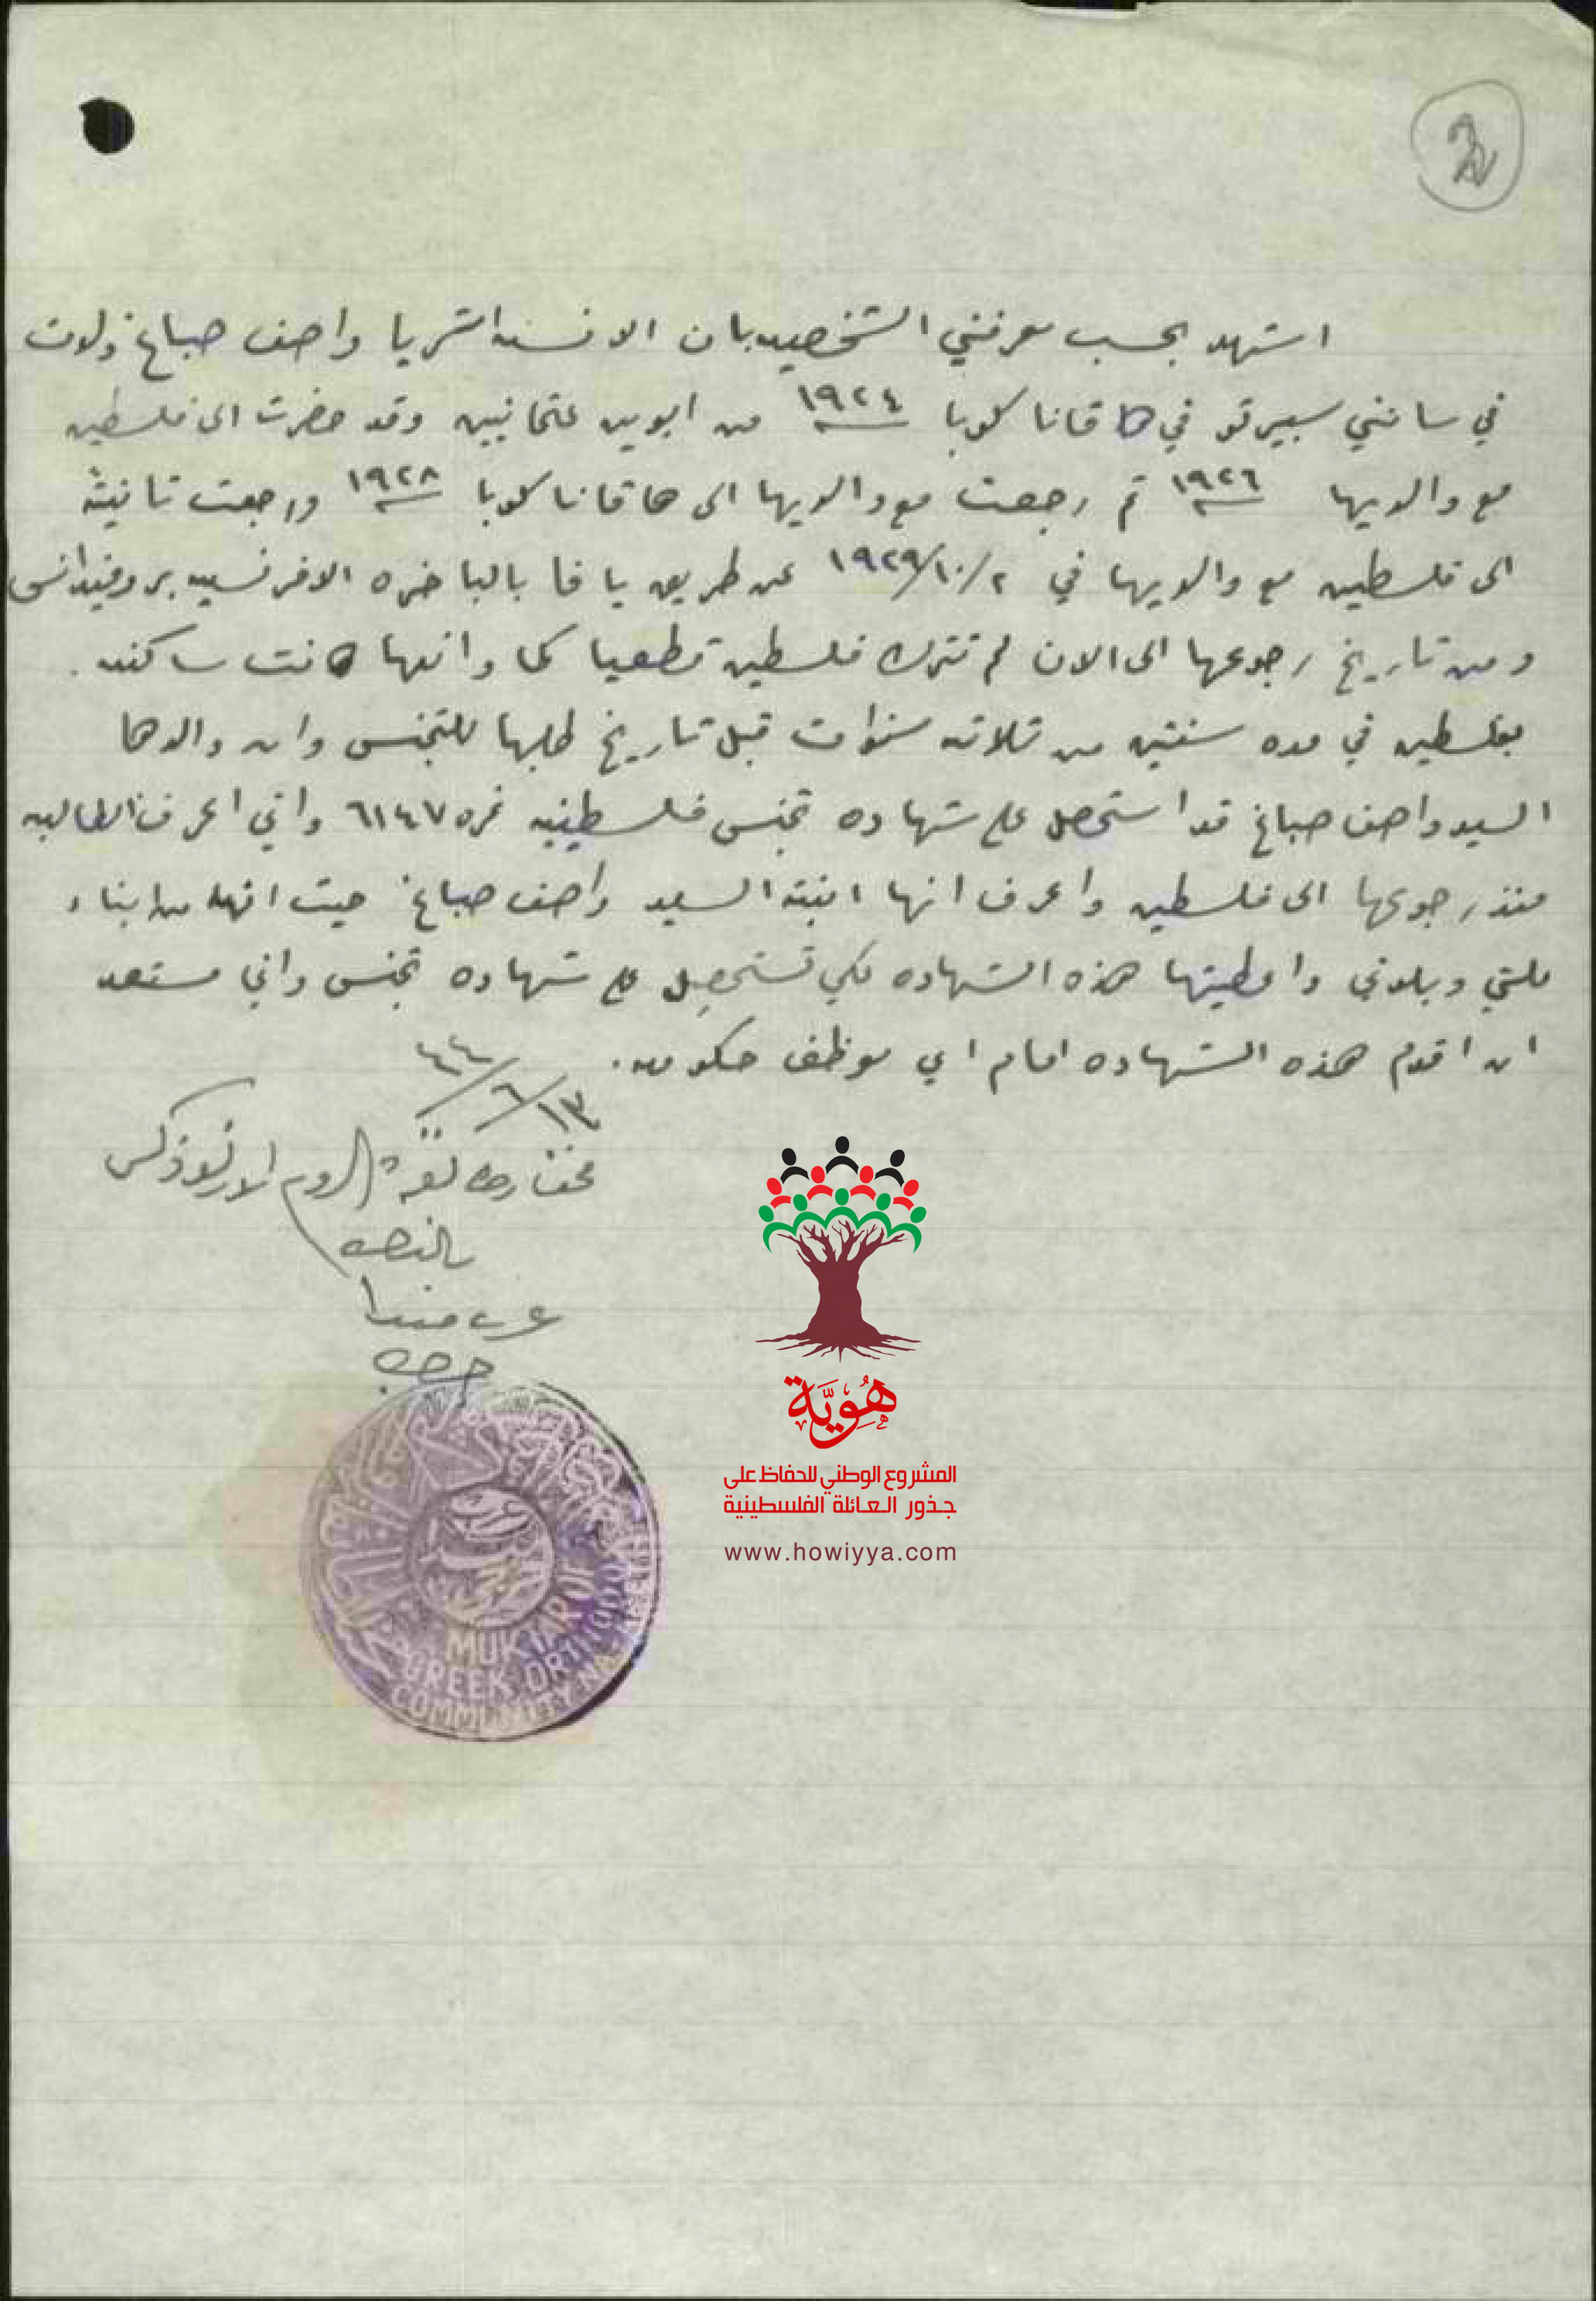 اشهد بحسب معرفتي الشخصيه بان الانسه اثريا واصف صباغ ولدت
في سانتي سبيرتو في هاڤانا كوبا سنة ١٩٢٤ من ابوين عثمانيين وقد حضرت الى فلسطين
مع والديها سنة ١٩٢٦ ثم رجعت مع والديها الى هاڤانا كوبا سنة ١٩٢٨ ورجعت ثانيةً
الى فلسطين مع والديها في ٢/١٠/١٩٢٩ عن طريق يافا بالباخره الافرنسيه بروفيدانس
ومن تاريخ رجوعها الى الان لم تترك فلسطين قطعيا كما وانها كانت ساكنه.
بفلسطين في مده سنتين من ثلاثه سنوات قبل تاريخ طلبها للتجنس وان والدها
السيد واصف صباغ قد استحصل على شهاده تجنس فلسطينيه نمره ٦١٤٧ واني اعرف الطالبه
منذ رجوعها الى فلسطين واعرف انها ابنة السيد واصف صباغ حيث انها من ابناء
ملتي وبلدتي واعطيتها هذه الشهاده لكي تستحصل على شهاده تجنس واني مستعد
ان اقدم هذه الشهاده امام اي موظف حكومه.
١٣/٦/٤٤
مختار طائفة الروم الارثوذكس
بالناصره
2
MUKTAR OF
GREEK ORTHODOX
COMMUNITY
هُوِيَّة
المشروع الوطني للحفاظ على
جذور العائلة الفلسطينية
www.howiyya.com